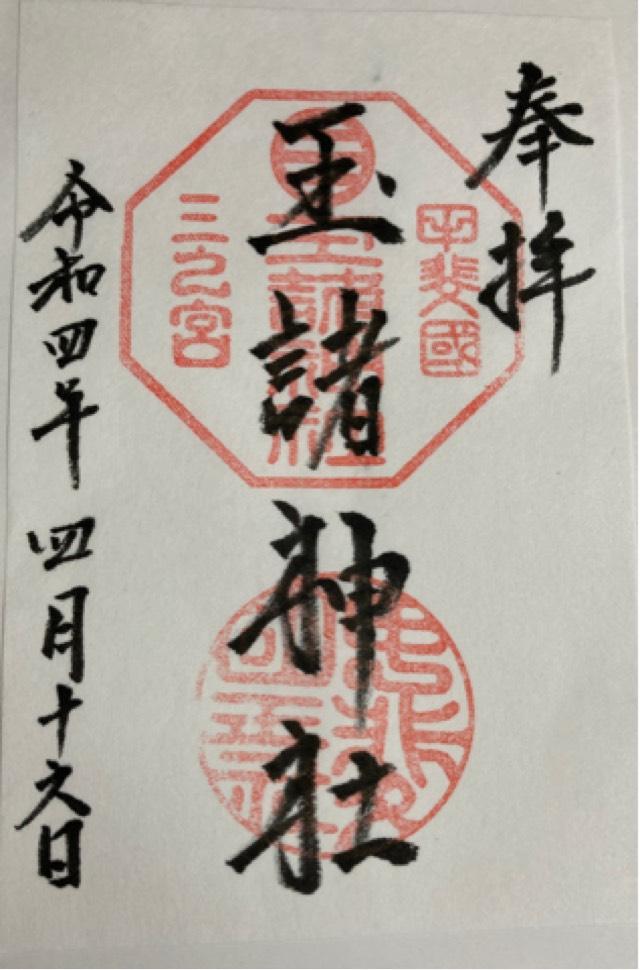 奉拝
甲斐國
玉諸神社
三之宮
令和四年 四月十六日